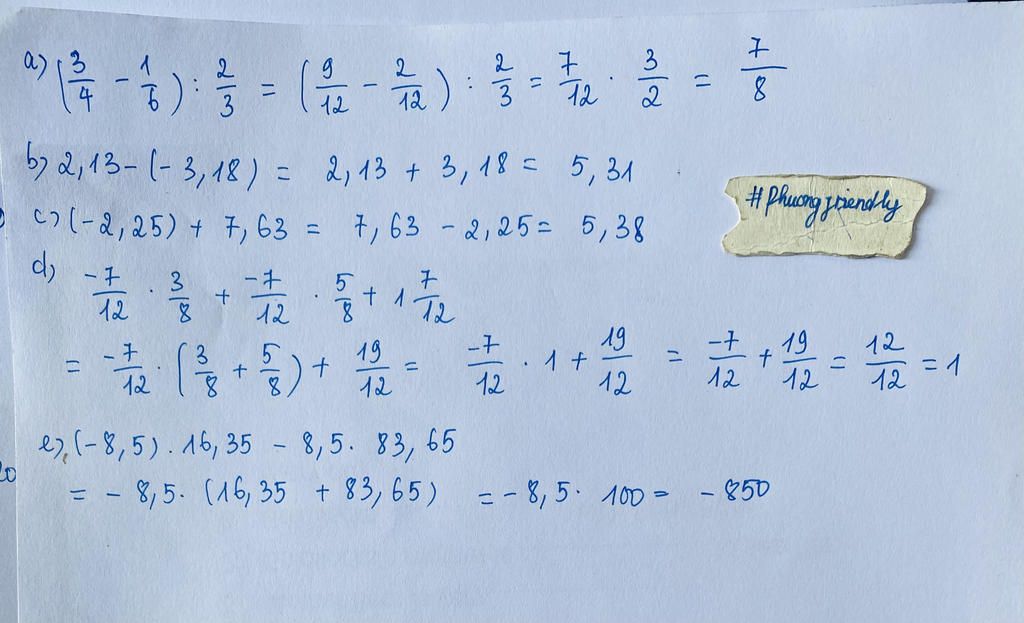 a) (3/4 - 1/6) : 2/3 = (9/12 - 2/12) : 2/3 = 7/12 . 3/2 = 7/8
b) 2,13 - (- 3,18) = 2,13 + 3,18 = 5,31
#Phuongfriendly
c) (-2,25) + 7,63 = 7,63 - 2,25 = 5,38
d) -7/12 . 3/8 + -7/12 . 5/8 + 1 7/12
= -7/12 . (3/8 + 5/8) + 19/12 = -7/12 . 1 + 19/12 = -7/12 + 19/12 = 12/12 = 1
e) (-8,5) . 16,35 - 8,5 . 83,65
= - 8,5 . (16,35 + 83,65) = - 8,5 . 100 = - 850